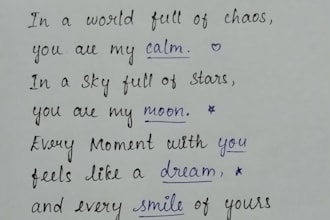 In a world full of chaos,
you are my calm. ♡
In a sky full of stars,
you are my moon. ☆
Every Moment with you
feels like a dream, ☆
and every smile of yours